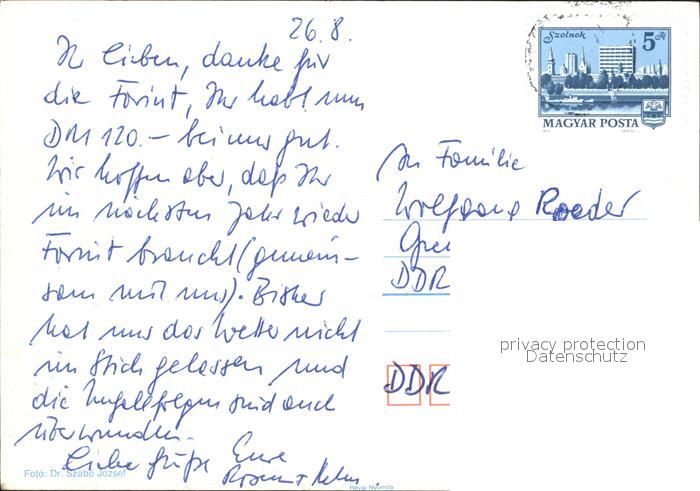 26.8.
Ihr lieben, danke für
die Forint, Ihr habt nun
DM 120.- bei uns gut.
Wir hoffen aber, daß Ihr
im nächsten Jahr wieder
Forint braucht (gemein-
sam mit uns). Bisher
hat uns das Wetter nicht
im Stich gelassen und
die sind auch
überwunden.
Liebe Grüße Eure
Szolnok 5 Ft
MAGYAR POSTA
An Familie
Wolfgang Roeder
DDR
DDR
privacy protection
Datenschutz
Fotó: Dr. Szabó József
Révai Nyomda